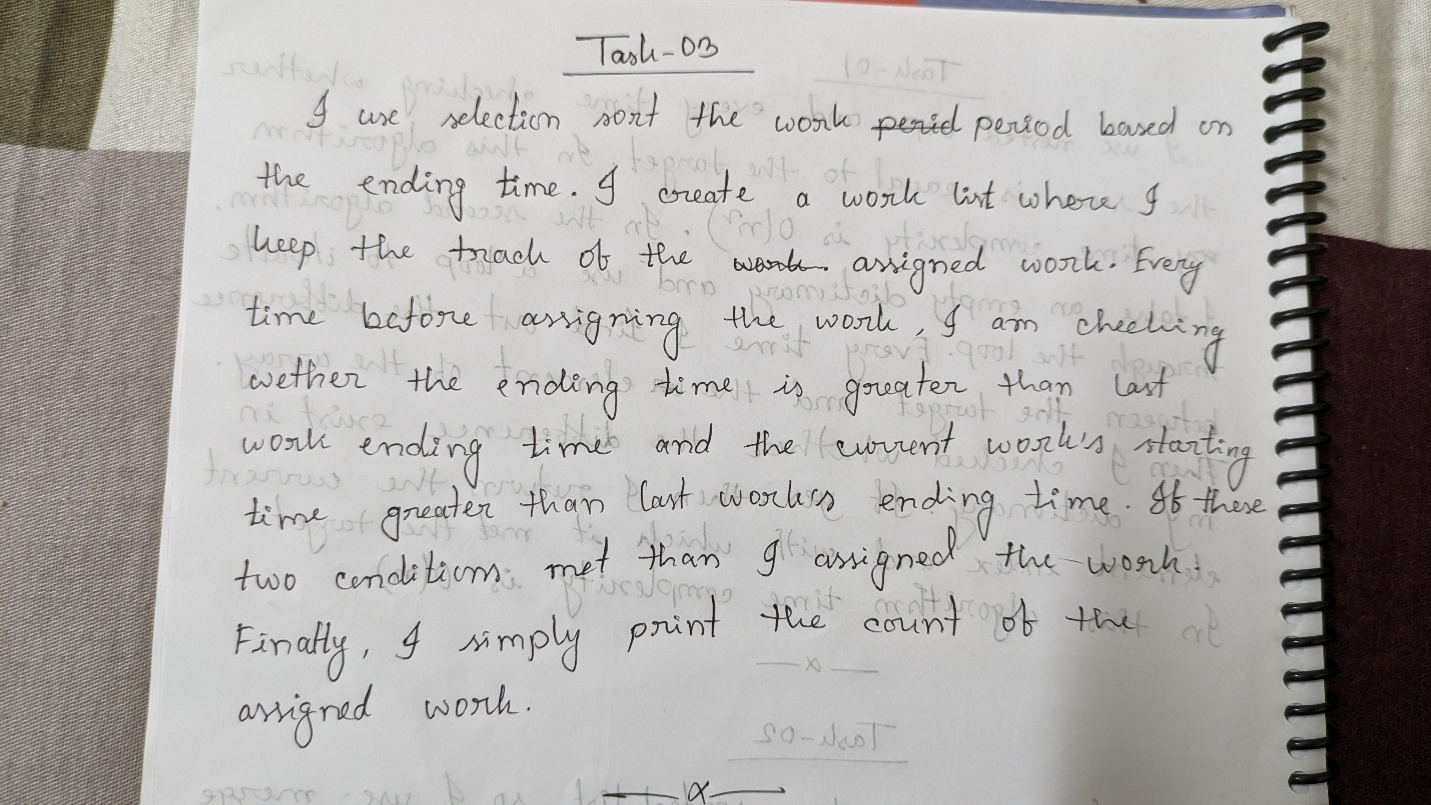 Task-03
I use selection sort the work perid period based on
the ending time. I create a work list where I
keep the track of the work. assigned work. Every
time before assigning the work, I am checking
wether the ending time is greater than last
work ending time and the current work's starting
time greater than last work's ending time. If these
two conditions met than I assigned the work.
Finally, I simply print the count of the
assigned work.